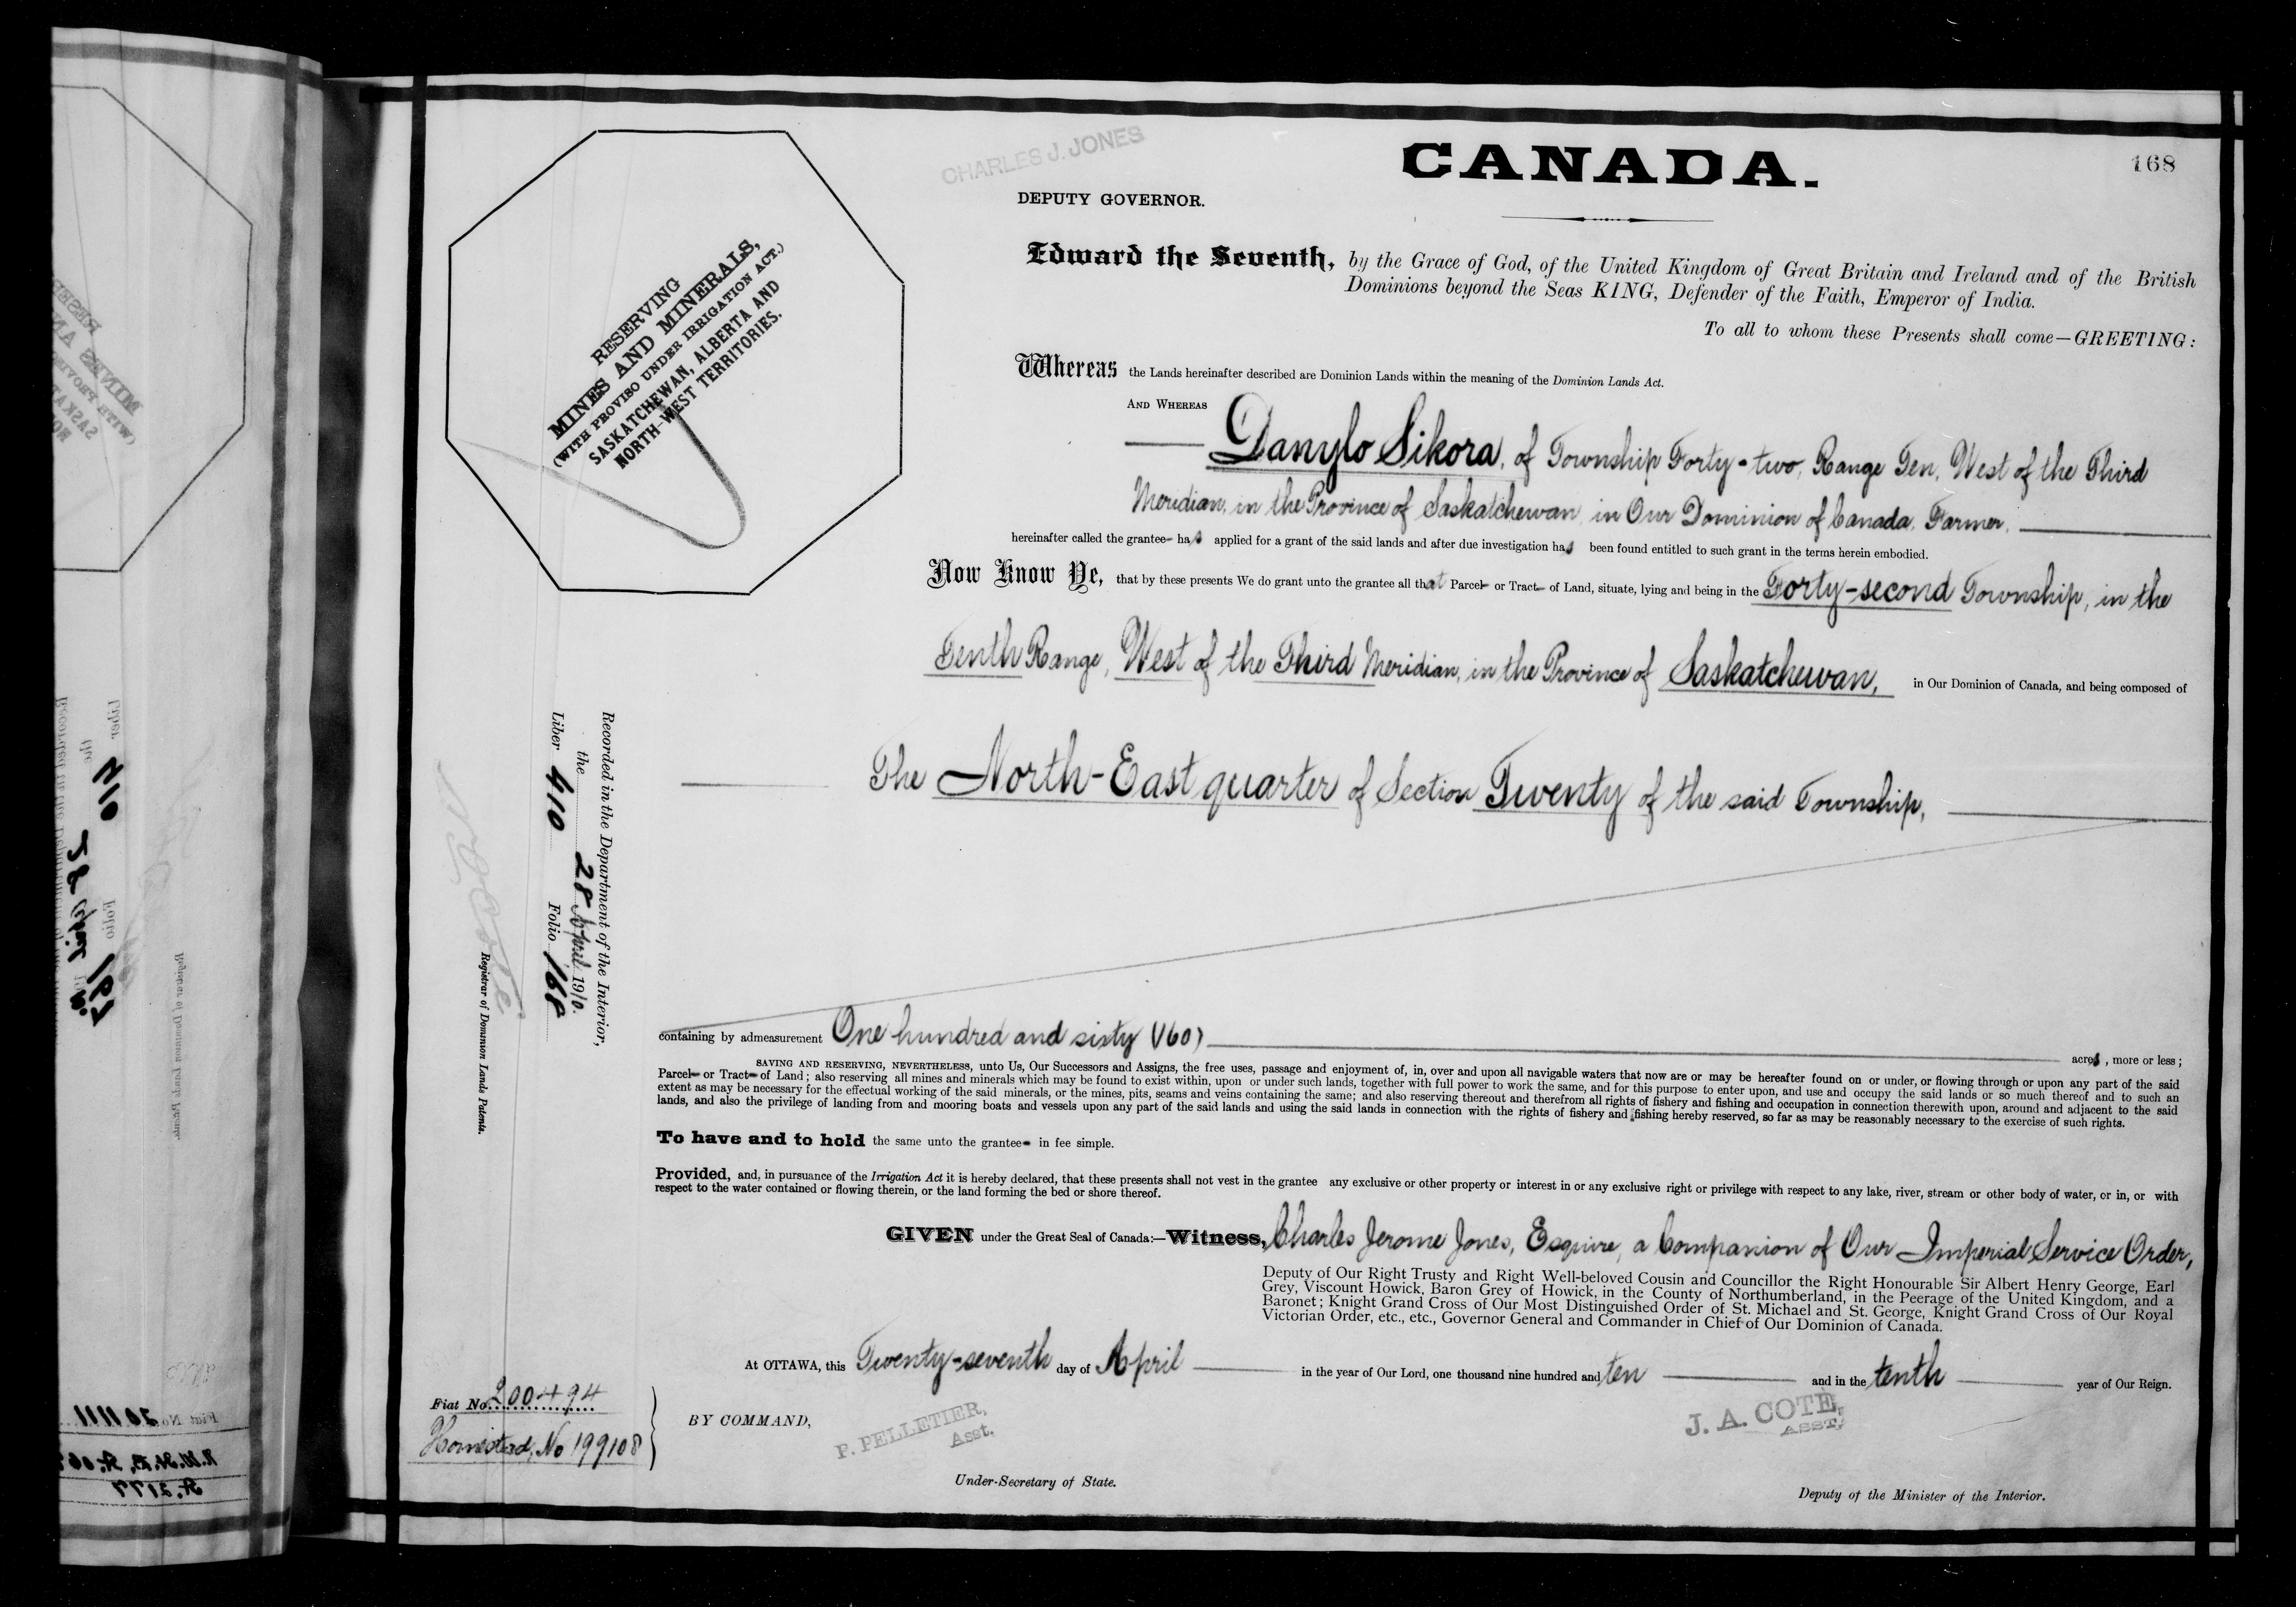 CHARLES J. JONES
CANADA.
168
DEPUTY GOVERNOR.
Edward the Seventh, by the Grace of God, of the United Kingdom of Great Britain and Ireland and of the British
Dominions beyond the Seas KING, Defender of the Faith, Emperor of India.
To all to whom these Presents shall come—GREETING:
RESERVING
MINES AND MINERALS,
(WITH PROVISO UNDER IRRIGATION ACT.)
SASKATCHEWAN, ALBERTA AND
NORTH-WEST TERRITORIES.
Whereas the Lands hereinafter described are Dominion Lands within the meaning of the Dominion Lands Act.
AND WHEREAS
Danylo Sikora, of Township Forty-two, Range Ten, West of the Third
Meridian, in the Province of Saskatchewan, in Our Dominion of Canada, Farmer,
hereinafter called the grantee has applied for a grant of the said lands and after due investigation has been found entitled to such grant in the terms herein embodied.
Now Know Ye, that by these presents We do grant unto the grantee all that Parcel or Tract of Land, situate, lying and being in the Forty-second Township, in the
Tenth Range, West of the Third Meridian, in the Province of Saskatchewan, in Our Dominion of Canada, and being composed of
The North-East quarter of Section Twenty of the said Township,
Recorded in the Department of the Interior,
the 28 April 1910.
Liber 410 Folio 168
N. O. Coté
Registrar of Dominion Lands Patents.
containing by admeasurement One hundred and sixty (160) acres, more or less;
SAVING AND RESERVING, NEVERTHELESS, unto Us, Our Successors and Assigns, the free uses, passage and enjoyment of, in, over and upon all navigable waters that now are or may be hereafter found on or under, or flowing through or upon any part of the said
Parcel or Tract of Land; also reserving all mines and minerals which may be found to exist within, upon or under such lands, together with full power to work the same, and for this purpose to enter upon, and use and occupy the said lands or so much thereof and to such an
extent as may be necessary for the effectual working of the said minerals, or the mines, pits, seams and veins containing the same; and also reserving thereout and therefrom all rights of fishery and fishing and occupation in connection therewith upon, around and adjacent to the said
lands, and also the privilege of landing from and mooring boats and vessels upon any part of the said lands and using the said lands in connection with the rights of fishery and fishing hereby reserved, so far as may be reasonably necessary to the exercise of such rights.
To have and to hold the same unto the grantee in fee simple.
Provided, and, in pursuance of the Irrigation Act it is hereby declared, that these presents shall not vest in the grantee any exclusive or other property or interest in or any exclusive right or privilege with respect to any lake, river, stream or other body of water, or in, or with
respect to the water contained or flowing therein, or the land forming the bed or shore thereof.
GIVEN under the Great Seal of Canada:—Witness, Charles Jerome Jones, Esquire, a Companion of Our Imperial Service Order,
Deputy of Our Right Trusty and Right Well-beloved Cousin and Councillor the Right Honourable Sir Albert Henry George, Earl
Grey, Viscount Howick, Baron Grey of Howick, in the County of Northumberland, in the Peerage of the United Kingdom, and a
Baronet; Knight Grand Cross of Our Most Distinguished Order of St. Michael and St. George, Knight Grand Cross of Our Royal
Victorian Order, etc., etc., Governor General and Commander in Chief of Our Dominion of Canada.
At OTTAWA, this Twenty-seventh day of April in the year of Our Lord, one thousand nine hundred and ten and in the tenth year of Our Reign.
Fiat No. 200494
Homestead, No 199108
BY COMMAND,
P. PELLETIER,
Asst.
Under-Secretary of State.
J. A. COTÉ,
ASST.
Deputy of the Minister of the Interior.